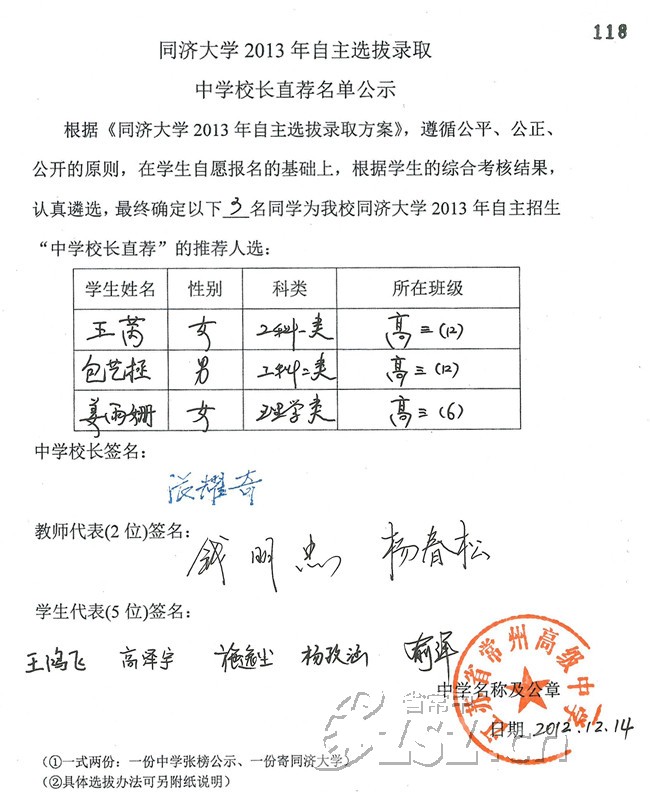 118
同济大学 2013 年自主选拔录取
中学校长直荐名单公示
根据《同济大学 2013 年自主选拔录取方案》，遵循公平、公正、
公开的原则，在学生自愿报名的基础上，根据学生的综合考核结果，
认真遴选，最终确定以下 3 名同学为我校同济大学 2013 年自主招生
“中学校长直荐”的推荐人选：
学生姓名 性别 科类 所在班级
王芮 女 工科一类 高三(12)
包艺 男 工科二类 高三(12)
姜雨姗 女 理学类 高三(6)
中学校长签名：
张耀奇
教师代表(2 位)签名：
钱明忠 杨春松
学生代表(5 位)签名：
王鸿飞 高泽宇 杨玫涵 俞晖
江苏省常州高级中学
中学名称及公章
日期 2012.12.14
(①一式两份：一份中学张榜公示、一份寄同济大学)
(②具体选拔办法可另附纸说明)